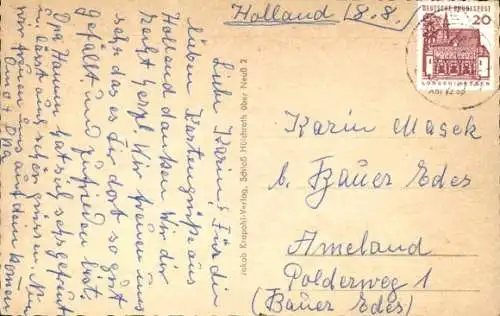 Liebe Karin! Für die
lieben Kartengrüße aus
Holland danken wir dir
recht herzl. Wir freuen uns
sehr das es Dir dort so gut
gefällt und zufrieden bist.
Opa Hamm hat sich sehr gefreut
u. lässt auch schön grüssen. Nun
wir freuen uns auf dein kommen
Oma + Opa
Jakob Krapohl-Verlag, Schloß Hülchrath über Neuß 2
Holland (8.8.)
DEUTSCHE BUNDESPOST
20
LORSCH/HESSEN
Karin Masek
b. Bauer Edes
Ameland
Polderweg 1
(Bauer Edes)